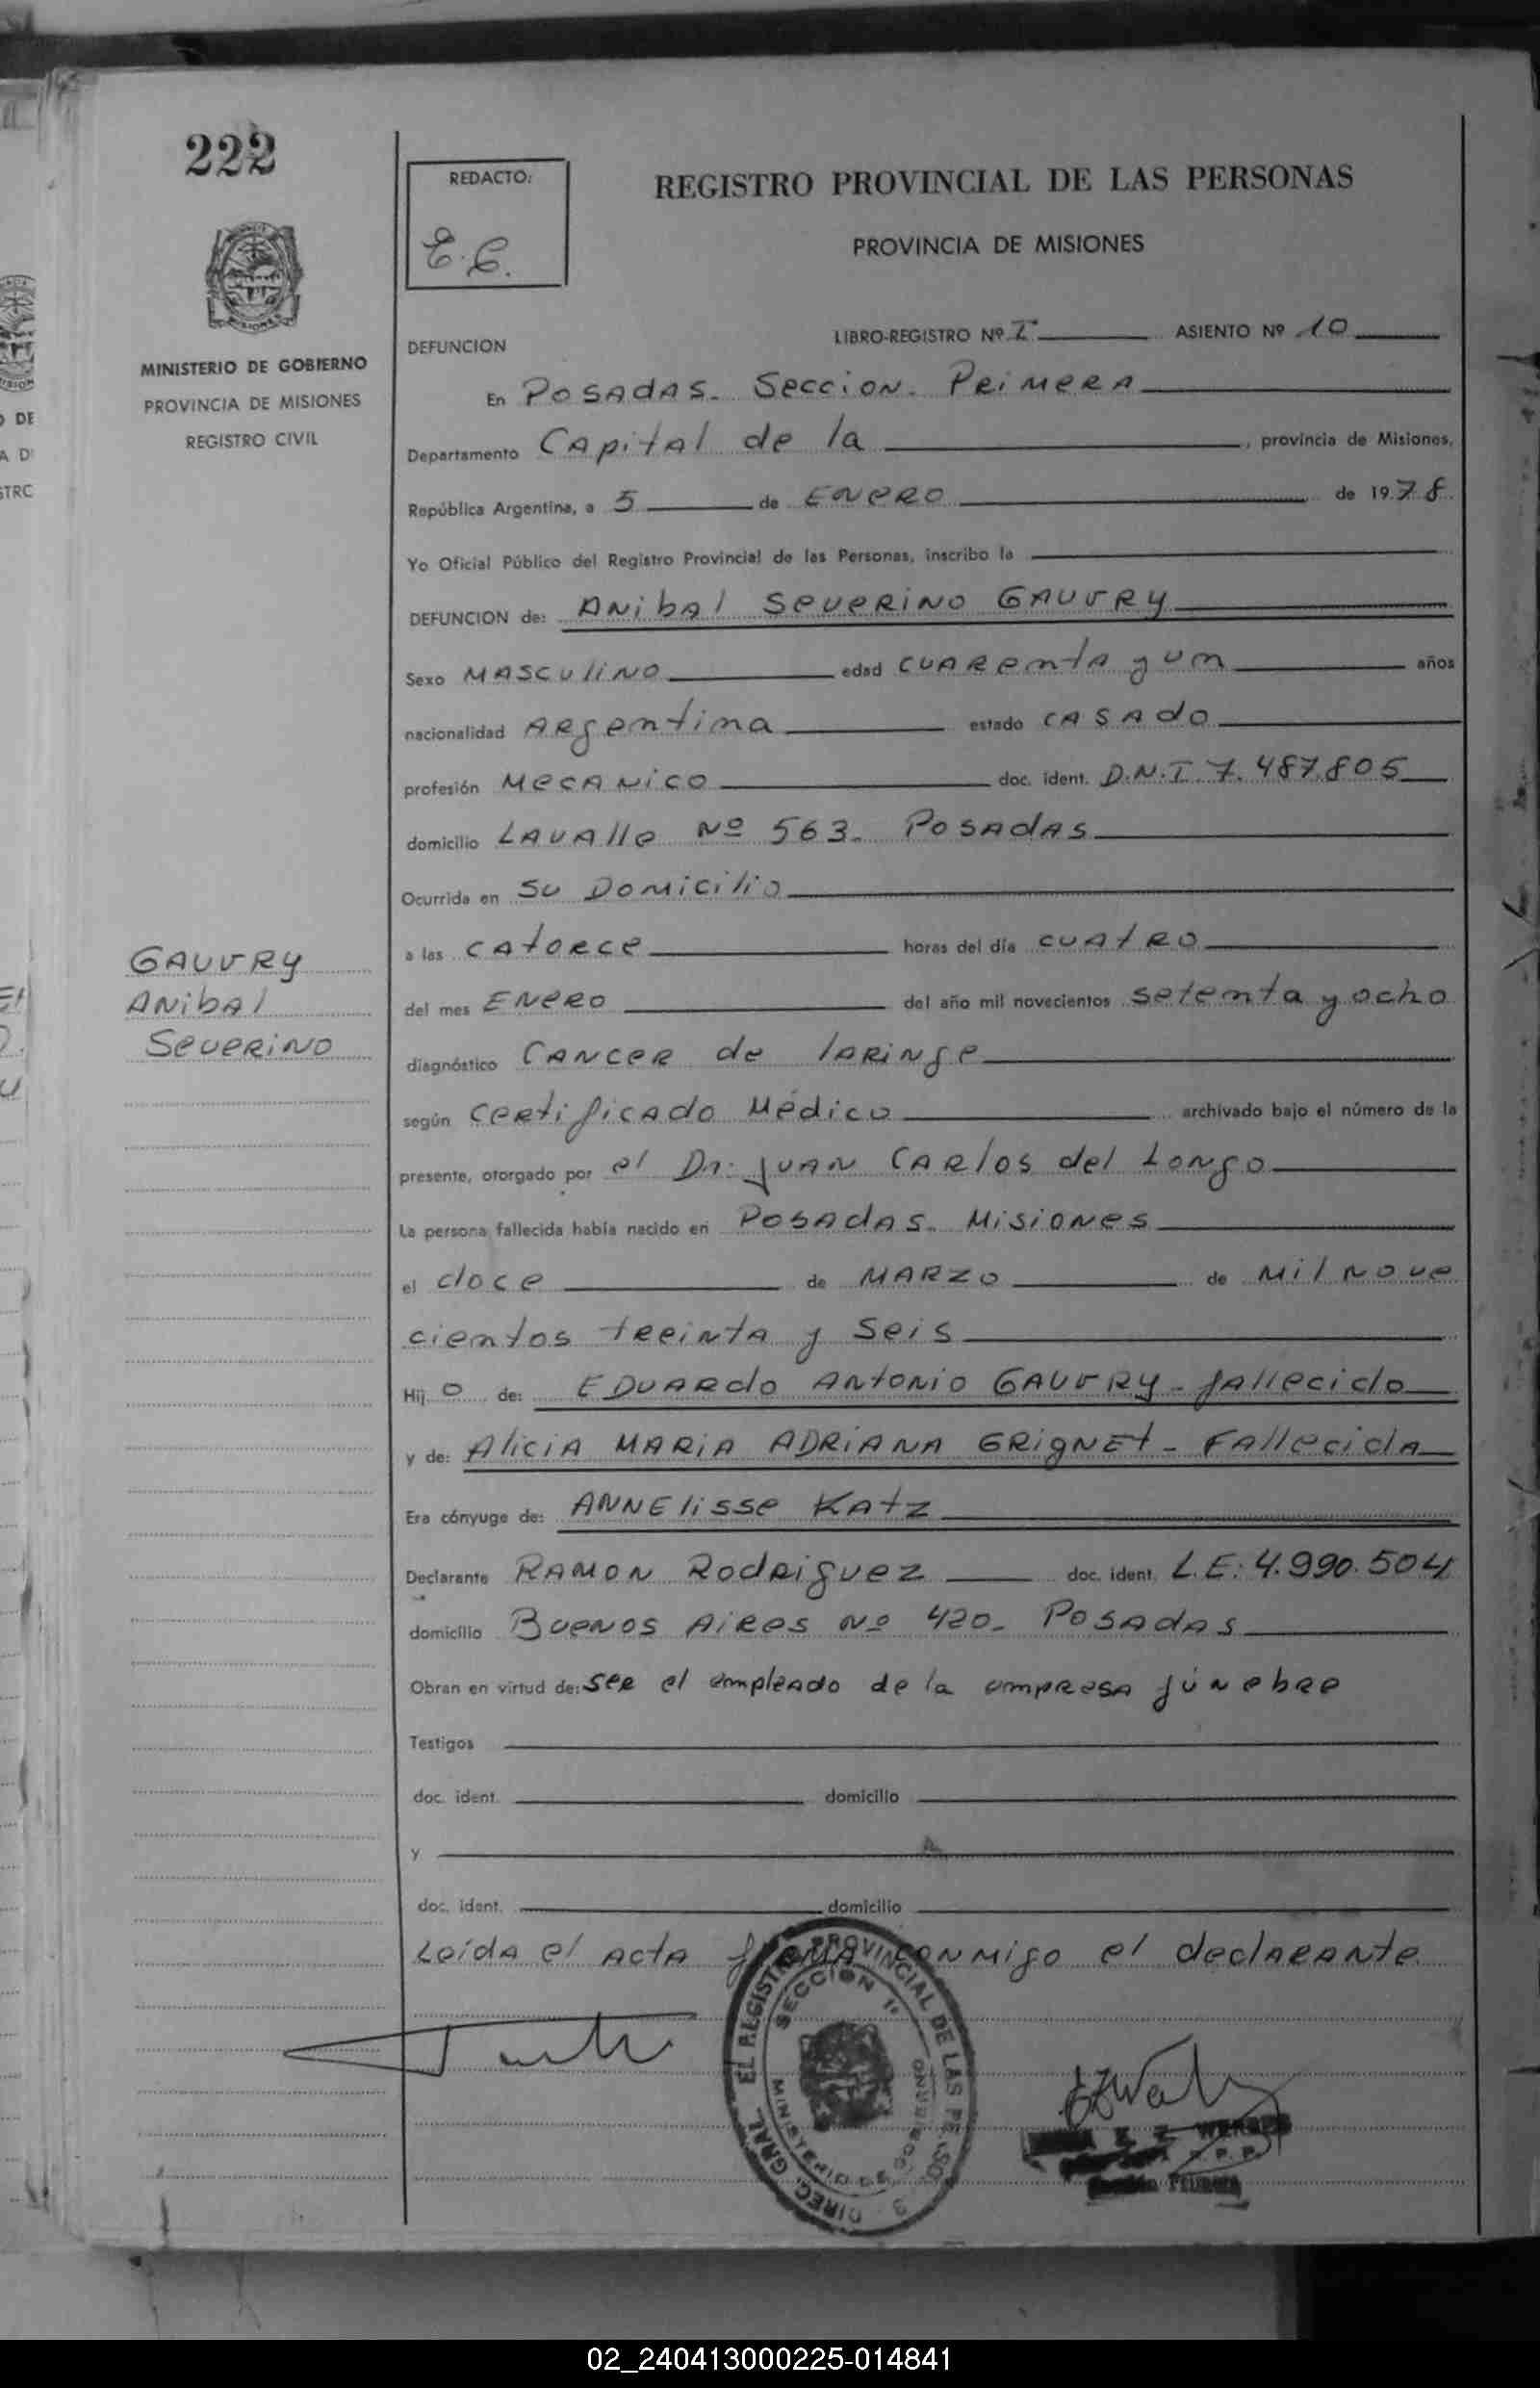 222
REDACTO:
E.C.
REGISTRO PROVINCIAL DE LAS PERSONAS
PROVINCIA DE MISIONES
MINISTERIO DE GOBIERNO
PROVINCIA DE MISIONES
REGISTRO CIVIL
LIBRO-REGISTRO Nº I ASIENTO Nº 10
DEFUNCION
En Posadas. Seccion. Primera
Departamento Capital de la , provincia de Misiones,
República Argentina, a 5 de Enero de 1978.
Yo Oficial Público del Registro Provincial de las Personas, inscribo la
DEFUNCION de: Anibal Severino GAUVRY
Sexo Masculino edad cuarenta y un años
nacionalidad Argentina estado casado
profesión Mecanico doc. ident. D.N.I. 7.487.805
domicilio Lavalle Nº 563. Posadas
Ocurrida en su Domicilio
a las catorce horas del día cuatro
del mes Enero del año mil novecientos setenta y ocho
diagnóstico Cancer de laringe
según certificado Médico archivado bajo el número de la
presente, otorgado por el Dr. Juan Carlos del Longo
La persona fallecida había nacido en Posadas. Misiones
el doce de Marzo de mil nove
cientos treinta y seis
Hijo de: Eduardo Antonio GAUVRY - fallecido
y de: Alicia Maria Adriana Grignet - Fallecida
Era cónyuge de: Annelisse Katz
Declarante Ramon Rodriguez doc. ident. L.E: 4.990.504
domicilio Buenos Aires Nº 420. Posadas
Obran en virtud de: ser el empleado de la empresa fúnebre
Testigos
doc. ident. domicilio
y
doc. ident. domicilio
Leída el acta firma conmigo el declarante
GAUVRY
Anibal
Severino
DIREC. GRAL. EL REGISTRO PROVINCIAL DE LAS PERSO.
SECCION 1ª
MINISTERIO DE GOBIERNO
3
Sección Primera
02_240413000225-014841